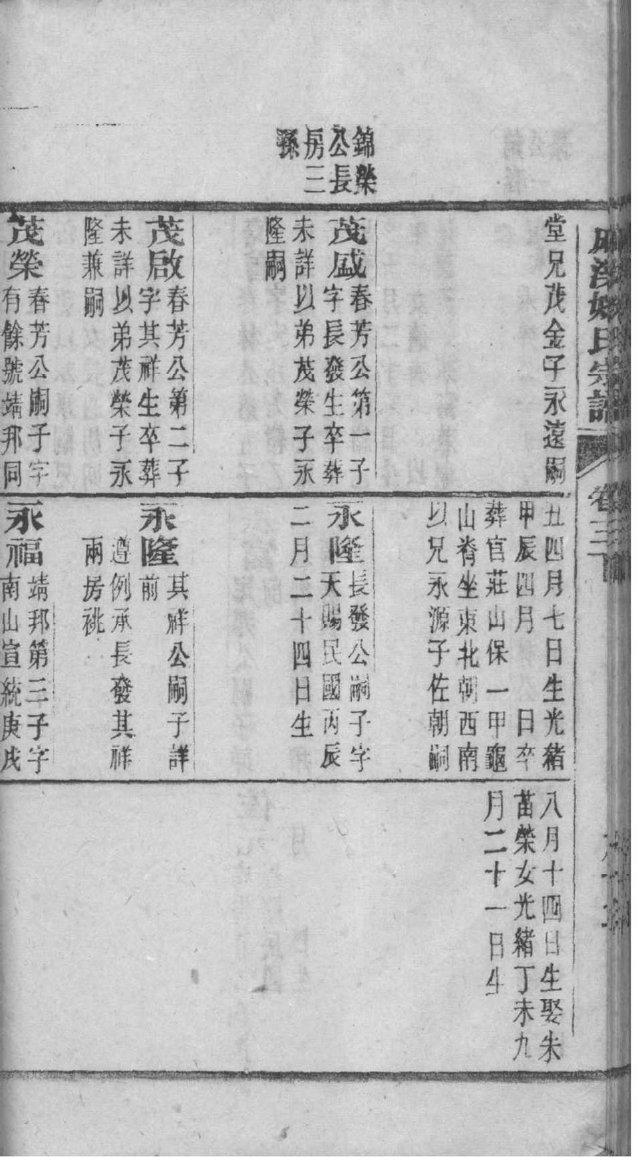 姚氏宗譜
卷三
錦榮
公長
房三
孫
堂兄茂金子永遠嗣
茂盛春芳公第一子
字長發生卒葬
未詳以弟茂榮子永
隆嗣
茂啟春芳公第二子
字其祥生卒葬
未詳以弟茂榮子永
隆兼嗣
茂榮春芳公嗣子字
有餘號靖邦同
丑四月七日生光緒
甲辰四月 日卒
葬官莊山保一甲龜
山脊坐東北朝西南
以兄永源子佐朝嗣
永隆長發公嗣子字
天賜民國丙辰
二月二十四日生
永隆其祥公嗣子詳
前
遵例承長發其祥
兩房祧
永福靖邦第三子字
南山宣統庚戌
八月十四日生娶朱
苗榮女光緒丁未九
月二十一日生